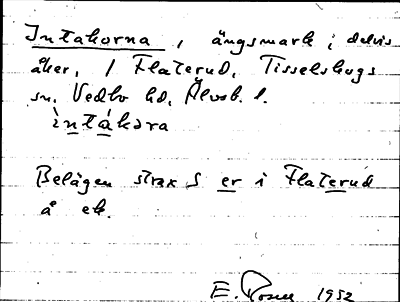 Intakorna, ängsmark; delvis
åker, / Flaterud, Tisselskogs
sn. Vedbo hd, Älvsb. l.
ìntákəra
Belägen strax S er i Flaterud
å ek.
E. Rosell 1952